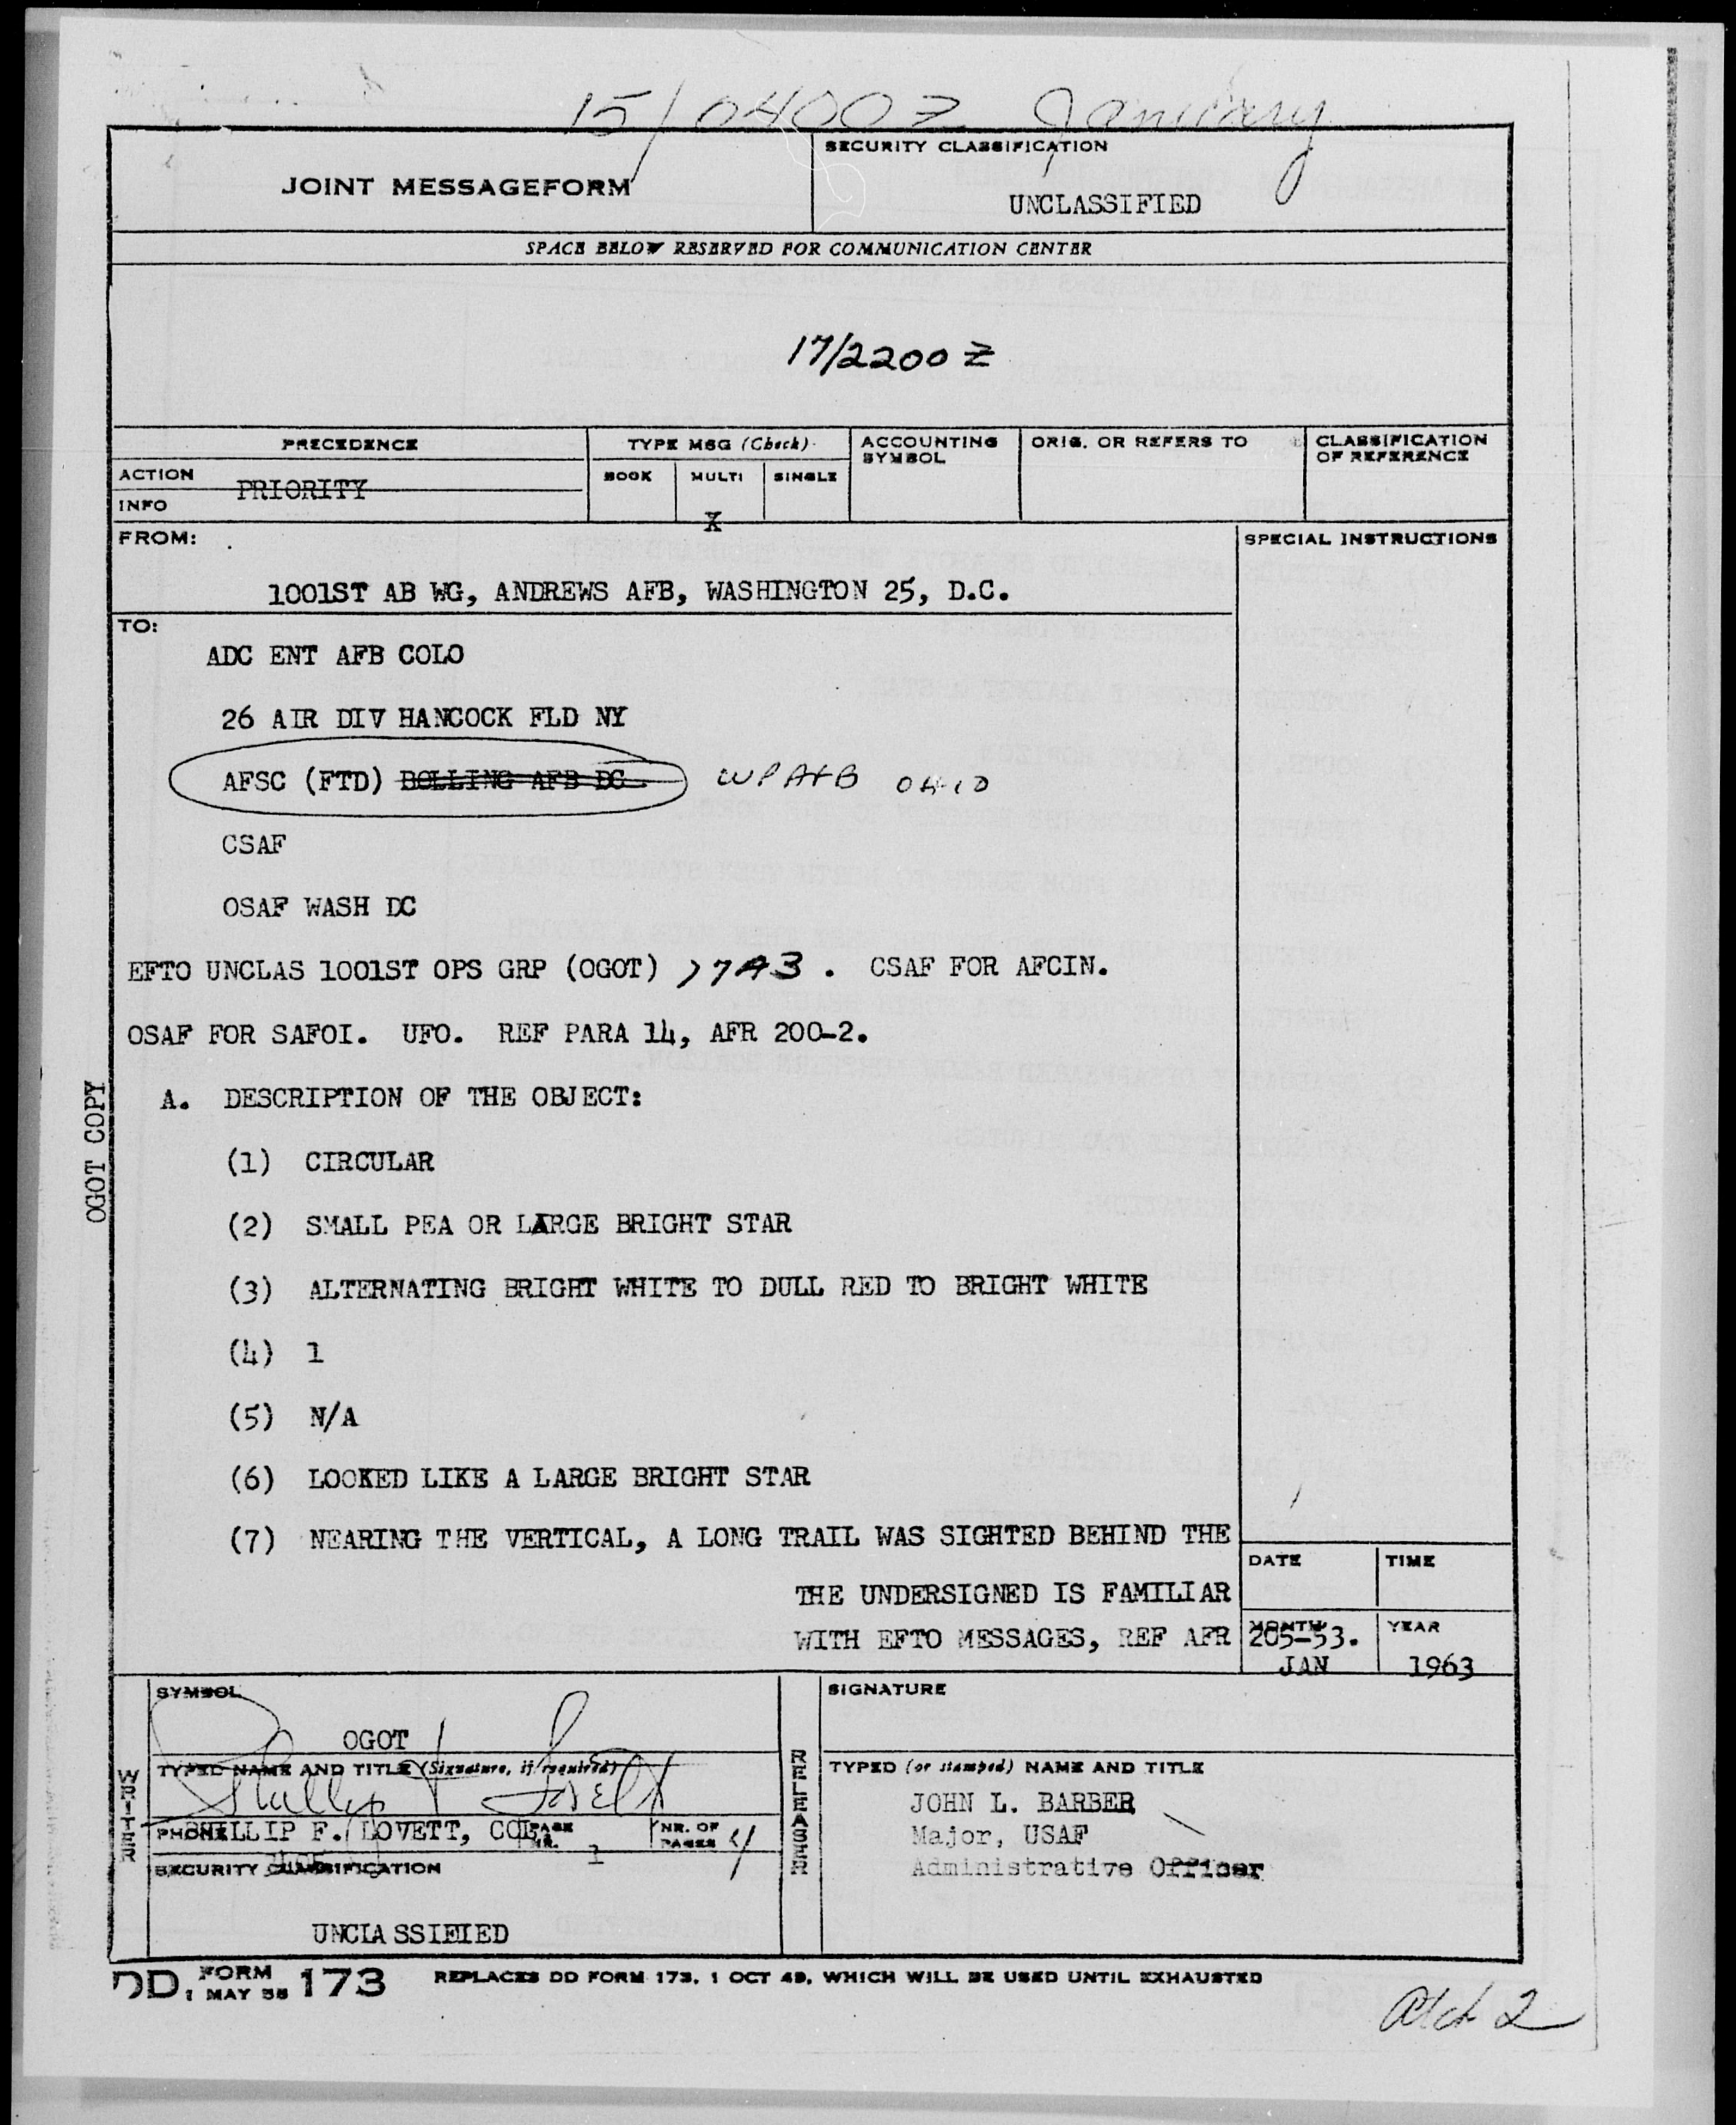 15/0400Z January
JOINT MESSAGEFORM
SECURITY CLASSIFICATION
UNCLASSIFIED
SPACE BELOW RESERVED FOR COMMUNICATION CENTER
17/2200 Z
PRECEDENCE
TYPE MSG (Check)
ACCOUNTING SYMBOL
ORIG. OR REFERS TO
CLASSIFICATION OF REFERENCE
ACTION
PRIORITY
INFO
BOOK
MULTI
SINGLE
X
FROM:
SPECIAL INSTRUCTIONS
1001ST AB WG, ANDREWS AFB, WASHINGTON 25, D.C.
TO:
ADC ENT AFB COLO
26 AIR DIV HANCOCK FLD NY
AFSC (FTD) BOLLING AFB DC WPAFB OHIO
CSAF
OSAF WASH DC
EFTO UNCLAS 1001ST OPS GRP (OGOT) . CSAF FOR AFCIN.
OSAF FOR SAFOI. UFO. REF PARA 14, AFR 200-2.
A. DESCRIPTION OF THE OBJECT:
(1) CIRCULAR
(2) SMALL PEA OR LARGE BRIGHT STAR
(3) ALTERNATING BRIGHT WHITE TO DULL RED TO BRIGHT WHITE
(4) 1
(5) N/A
(6) LOOKED LIKE A LARGE BRIGHT STAR
(7) NEARING THE VERTICAL, A LONG TRAIL WAS SIGHTED BEHIND THE
OGOT COPY
DATE
TIME
THE UNDERSIGNED IS FAMILIAR
WITH EFTO MESSAGES, REF AFR 205-53.
MONTH
YEAR
JAN
1963
WRITER
SYMBOL
OGOT
TYPED NAME AND TITLE (Signature, if required)
PHILLIP F. LOVETT, COL
PHONE
PAGE NR.
1
NR. OF PAGES
4
SECURITY CLASSIFICATION
UNCLASSIFIED
RELEASER
SIGNATURE
TYPED (or stamped) NAME AND TITLE
JOHN L. BARBER
Major, USAF
Administrative Officer
DD FORM 173
1 MAY 55
REPLACES DD FORM 173, 1 OCT 49, WHICH WILL BE USED UNTIL EXHAUSTED
Atch 2